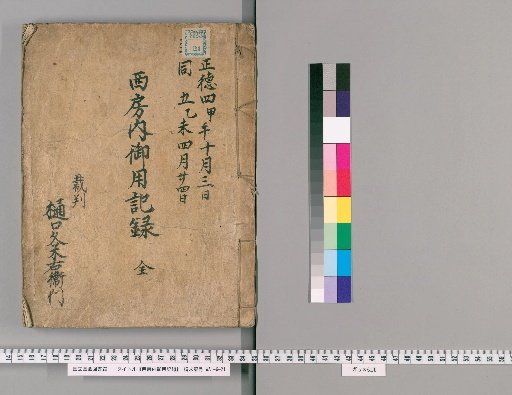 正徳四甲午十月三日
同 五乙未四月廿四日
西房内御用記録 全
裁判
樋口久米右衛門